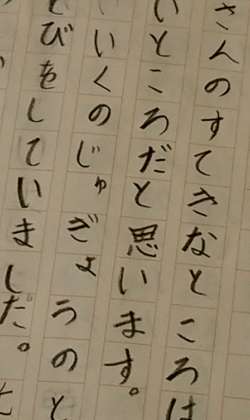 さんのすてきなところは
いところだと思います。
いくのじゅぎょうのと
びをしていました。